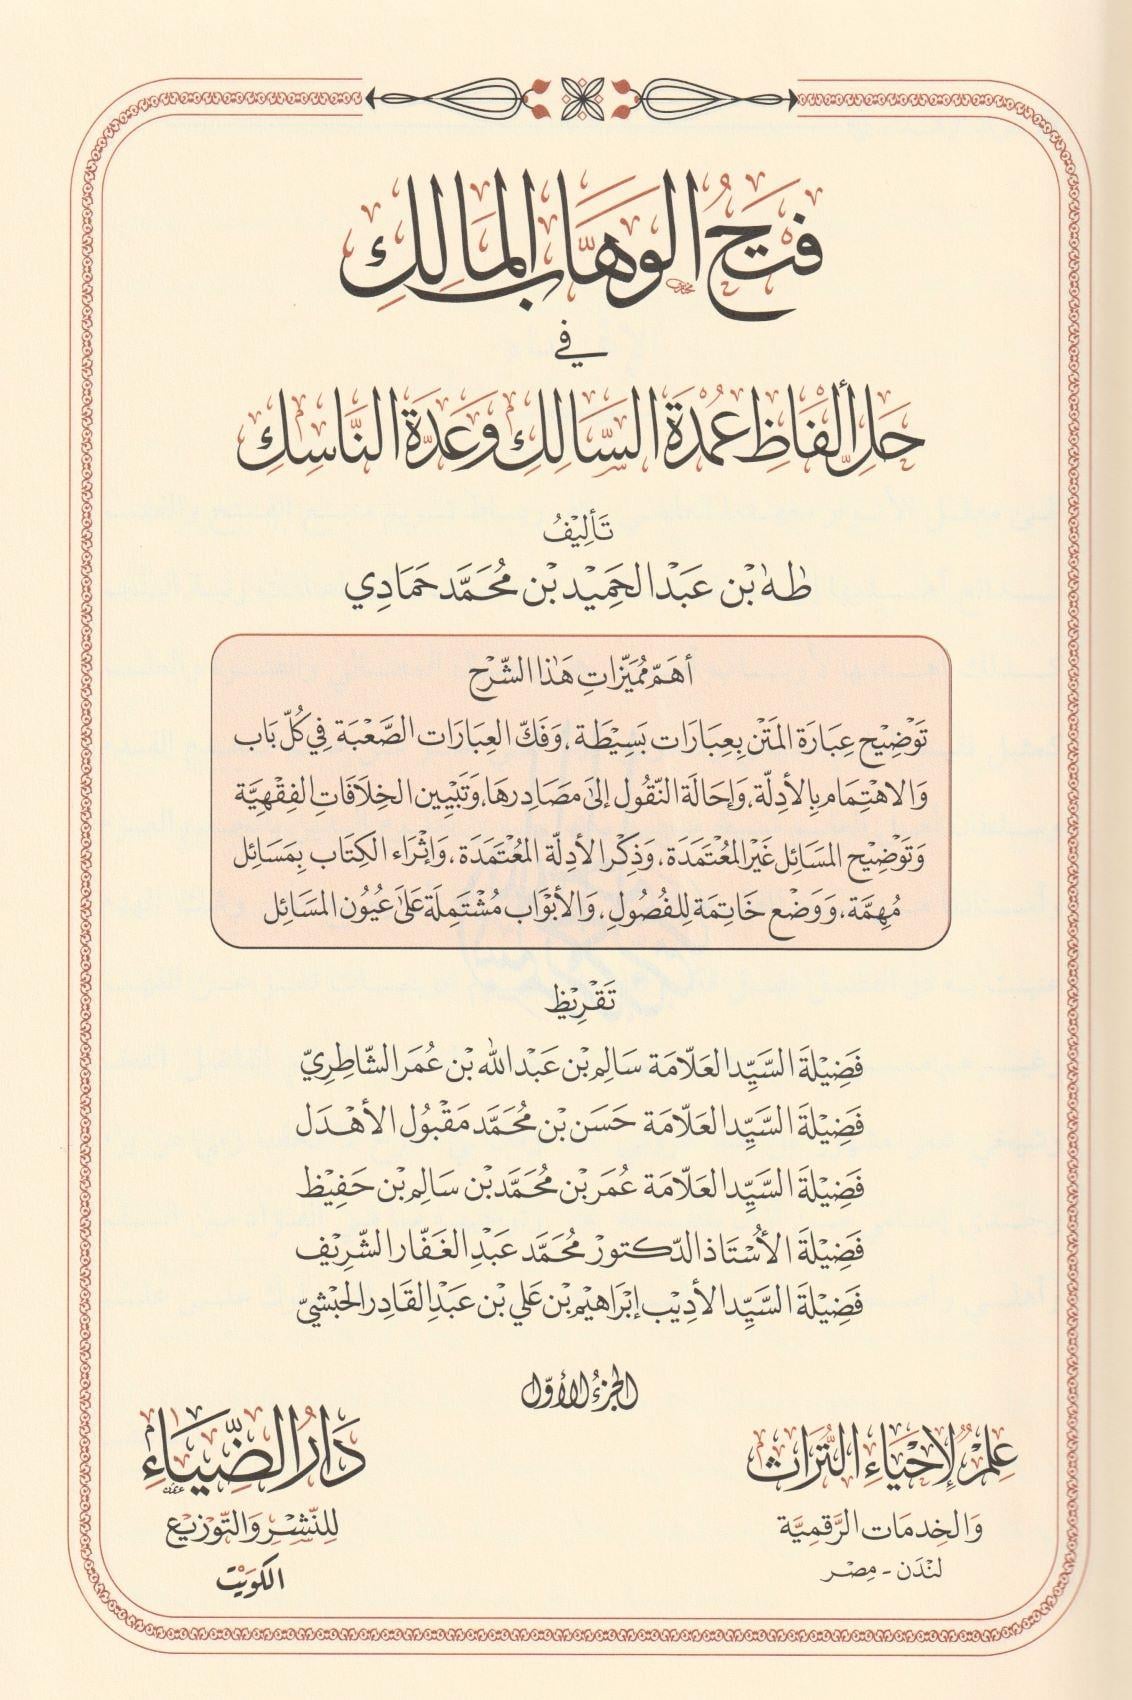 فَتْحُ الوَهَّابِ المَالِكِ
فِي
حَلِّ أَلْفَاظِ عُمْدَةِ السَّالِكِ وَعُدَّةِ النَّاسِكِ
تَأْلِيْفُ
طٰهٰ بْن عَبْد الحَمِيْد بْن مُحَمَّد حَمَادِي
أَهَمّ مُمَيِّزَاتِ هَذَا الشَّرْح
تَوْضِيْح عِبَارَة المَتْن بِعِبَارَات بَسِيْطَة، وَفَكّ العِبَارَات الصَّعْبَة فِي كُلّ بَاب
وَالاهْتِمَام بِالأَدِلَّة، وَإِحَالَة النُّقُول إِلَى مَصَادِرهَا، وَتَبْيِين الخِلَافَاتِ الفِقْهِيَّة
وَتَوْضِيْح المَسَائِل غَيْر المُعْتَمَدَة، وَذِكْر الأَدِلَّة المُعْتَمَدَة، وَإِثْرَاء الكِتَاب بِمَسَائِل
مُهِمَّة، وَوَضْع خَاتِمَة لِلفُصُولِ، وَالأَبْوَاب مُشْتَمِلَة عَلَى عُيُون المَسَائِل
تَقْرِيْظ
فَضِيْلَة السَّيِّد العَلَّامَة سَالِم بْن عَبْد اللّٰه بْن عُمَر الشَّاطِرِيّ
فَضِيْلَة السَّيِّد العَلَّامَة حَسَن بْن مُحَمَّد مَقْبُول الأَهْدَل
فَضِيْلَة السَّيِّد العَلَّامَة عُمَر بْن مُحَمَّد بْن سَالِم بْن حَفِيْظ
فَضِيْلَة الأُسْتَاذ الدّكتورْ مُحَمَّد عَبْدِ الغَفَّار الشَّرِيْف
فَضِيْلَة السَّيِّد الأَدِيْب إِبْرَاهِيْم بْن عَلِي بْن عَبْد القَادِر الحَبْشِيّ
الجُزْءُ الأَوَّل
عِلْمٌ لِإِحْيَاءِ التُّرَاث
وَالخِدمَات الرَّقمِيَّة
لَنْدَن - مِصْر
دَارُ الضِّيَاءِ
لِلنَّشْرِ وَالتَّوْزِيْع
الكُوَيْت